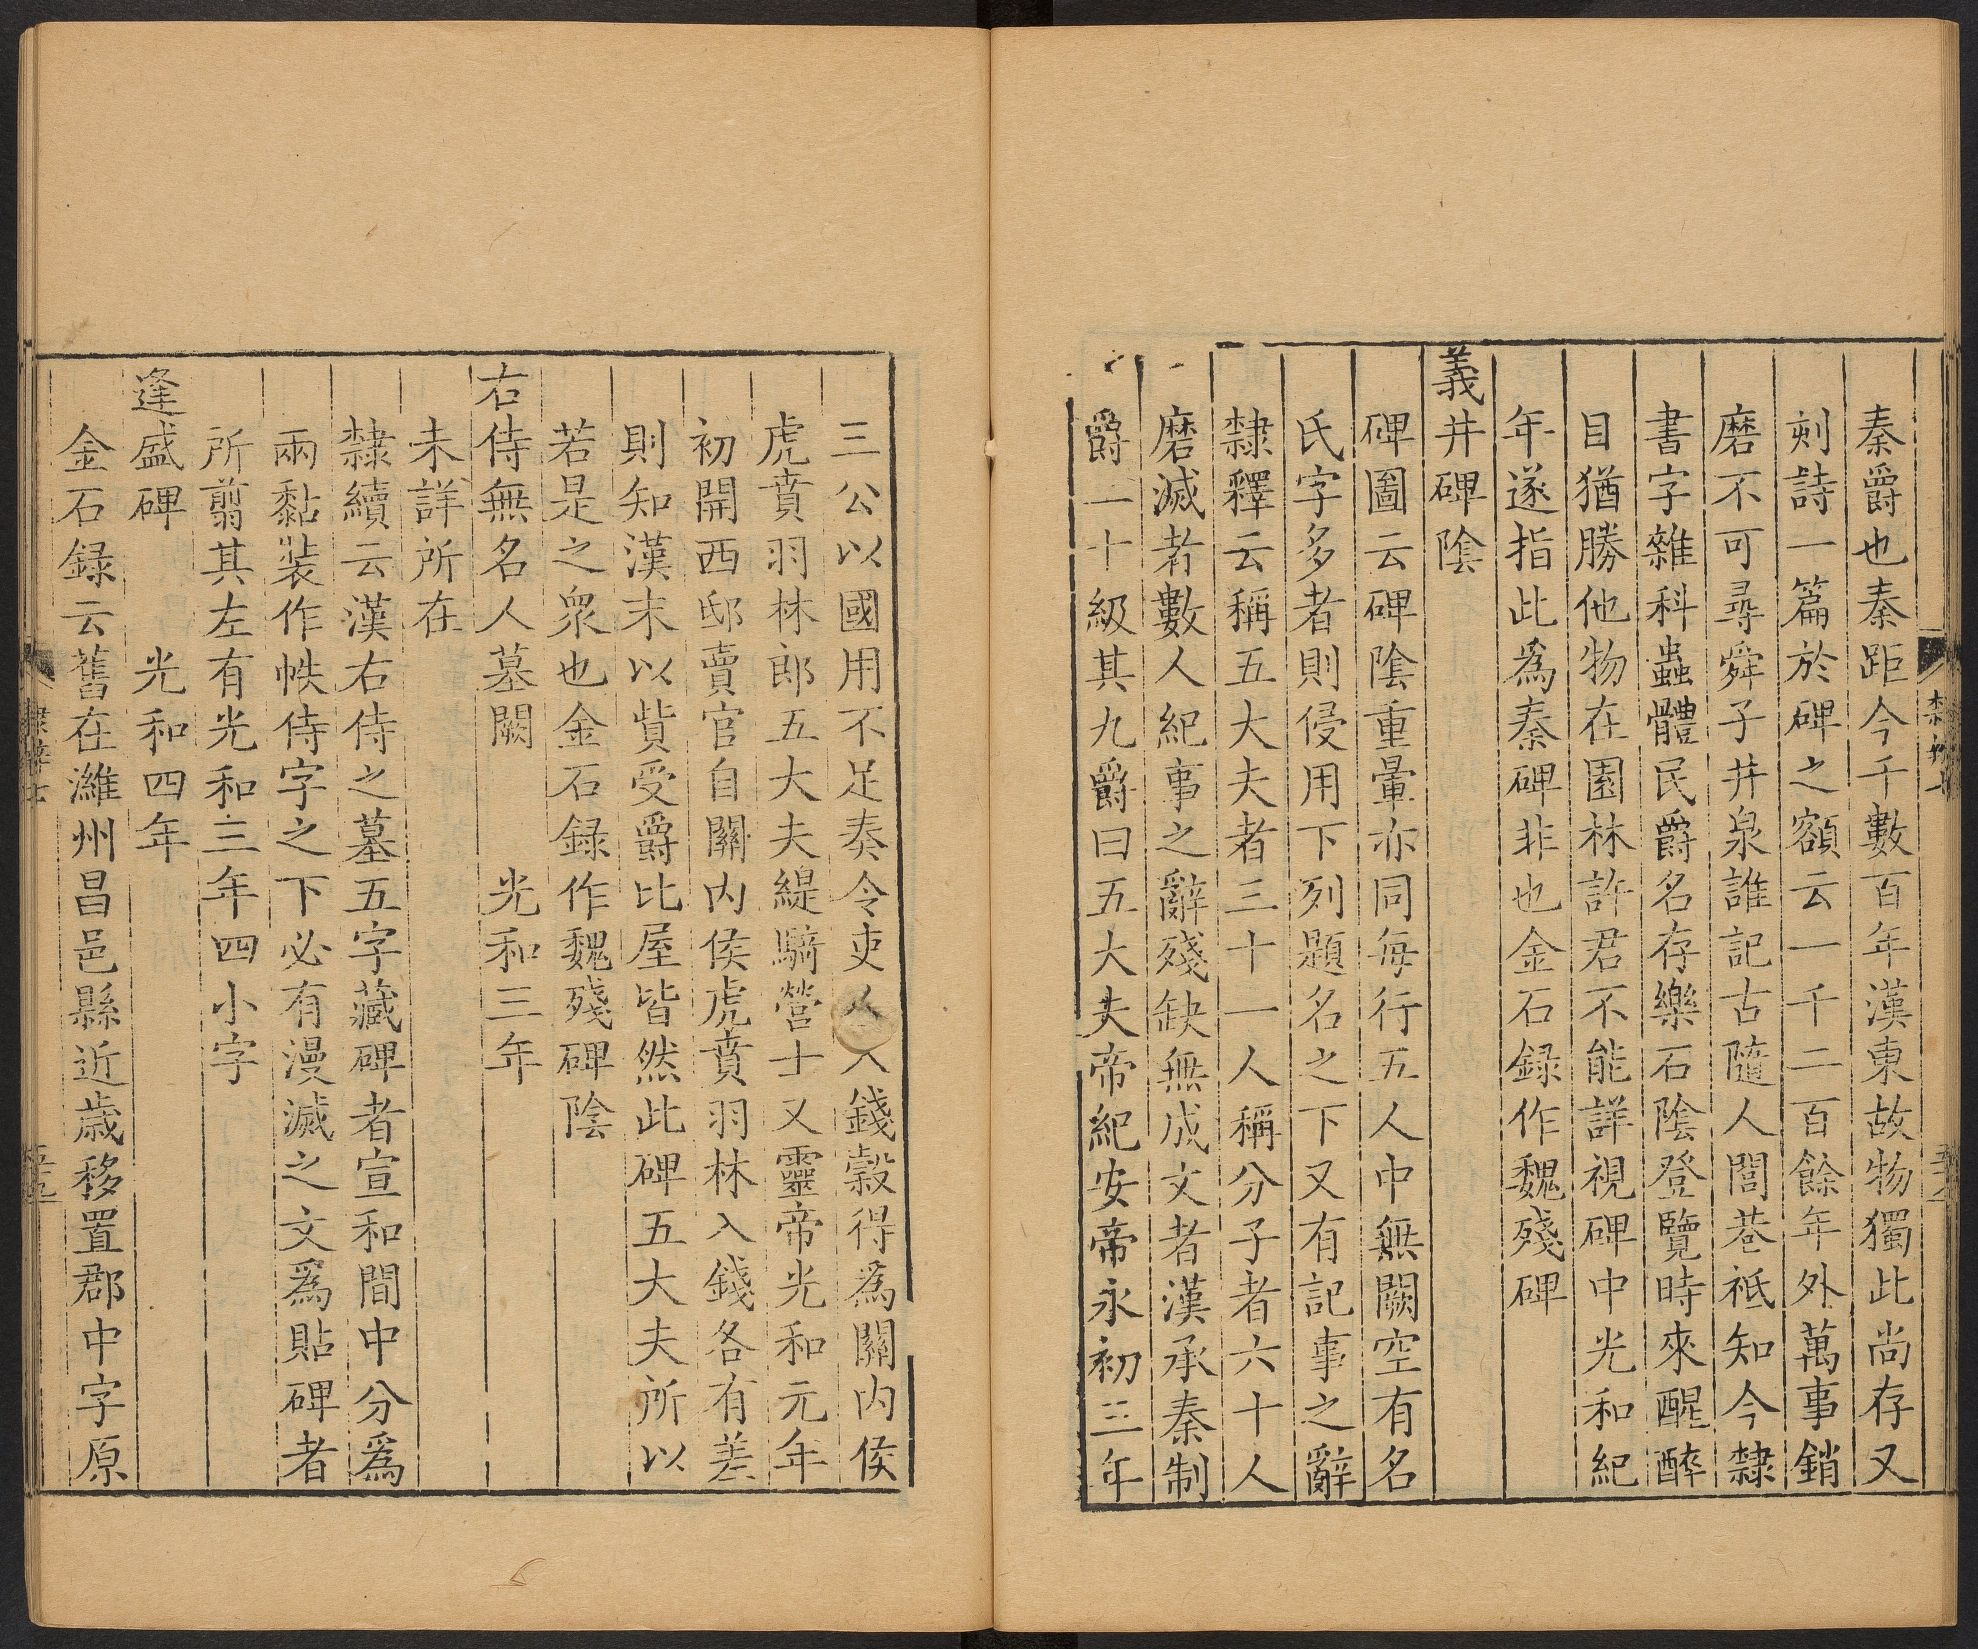 秦爵也秦距今千數百年漢東故物獨此尚存又
刻詩一篇於碑之額云一千二百餘年外萬事銷
磨不可尋舜子井泉誰記古隨人閭巷祇知今隸
書字雜科蟲體民爵名存樂石陰登覽時來醒醉
目猶勝他物在園林許君不能詳視碑中光和紀
年遂指此為秦碑非也金石録作魏殘碑
義井碑陰
碑圖云碑陰重暈亦同每行五人中無闕空有名
氏字多者則侵用下列題名之下又有記事之辭
隸釋云稱五大夫者三十一人稱分子者六十人
磨滅者數人紀事之辭殘缺無成文者漢承秦制
爵二十級其九爵曰五大夫帝紀安帝永初三年
三公以國用不足奏令吏人入錢穀得為關內侯
虎賁羽林郎五大夫緹騎營士又靈帝光和元年
初開西邸賣官自關內侯虎賁羽林入錢各有差
則知漢末以貲受爵比屋皆然此碑五大夫所以
若是之衆也金石録作魏殘碑陰
右侍無名人墓闕 光和三年
未詳所在
隸續云漢右侍之墓五字藏碑者宣和間中分為
兩黏裝作帙侍字之下必有漫滅之文為貼碑者
所翦其左有光和三年四小字
逄盛碑 光和四年
金石録云舊在濰州昌邑縣近歲移置郡中字原